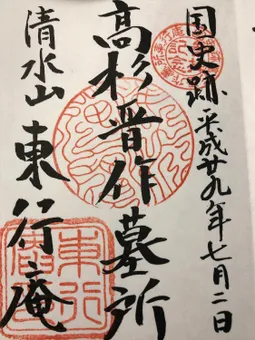 国史跡 平成廿九年七月二日
高杉晋作墓所
清水山 東行庵